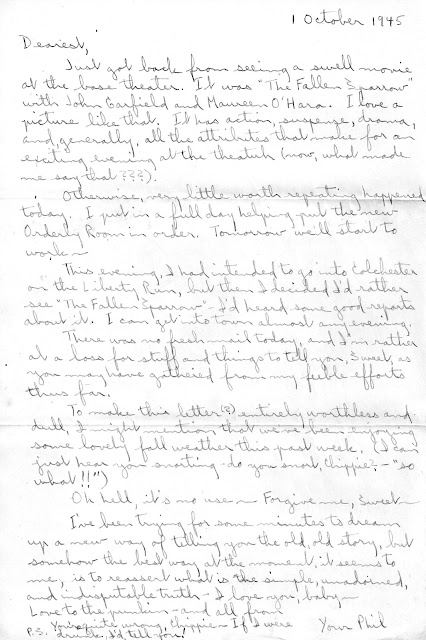 1 October 1945
Dearest,
Just got back from seeing a swell movie
at the base theater. It was "The Fallen Sparrow"
with John Garfield and Maureen O'Hara. I love a
picture like that. It has action, suspense, drama,
and, generally, all the attributes that make for an
exciting evening at the theatuh (now, what made
me say that???).
Otherwise, very little worth repeating happened
today. I put in a full day helping put the new
Orderly Room in order. Tomorrow we'll start to
work~
This evening, I had intended to go into Colchester
on the Liberty Run, but then I decided I'd rather
see "The Fallen Sparrow"- I'd heard some good reports
about it. I can get into town almost any evening.
There was no fresh mail today, and I'm rather
at a loss for stuff and things to tell you, Sweet, as
you may have gathered from my feeble efforts
thus far.
To make this letter(?) entirely worthless and
dull, I might mention that we've been enjoying
some lovely fall weather this past week. (I can
just hear you snorting - do you snort, Chippie? - "so
what!!")
Oh hell, it's no use ~ Forgive me, Sweet ~
I've been trying for some minutes to dream
up a new way of telling you the old, old story, but
somehow the best way at the moment, it seems to
me, is to reassert what is the simple, unadorned,
and indisputable truth - I love you, baby ~
Love to the punkin - and all from
Your Phil
P.S. You're quite wrong, Chippie - If I were
drunk, I'd tell you!